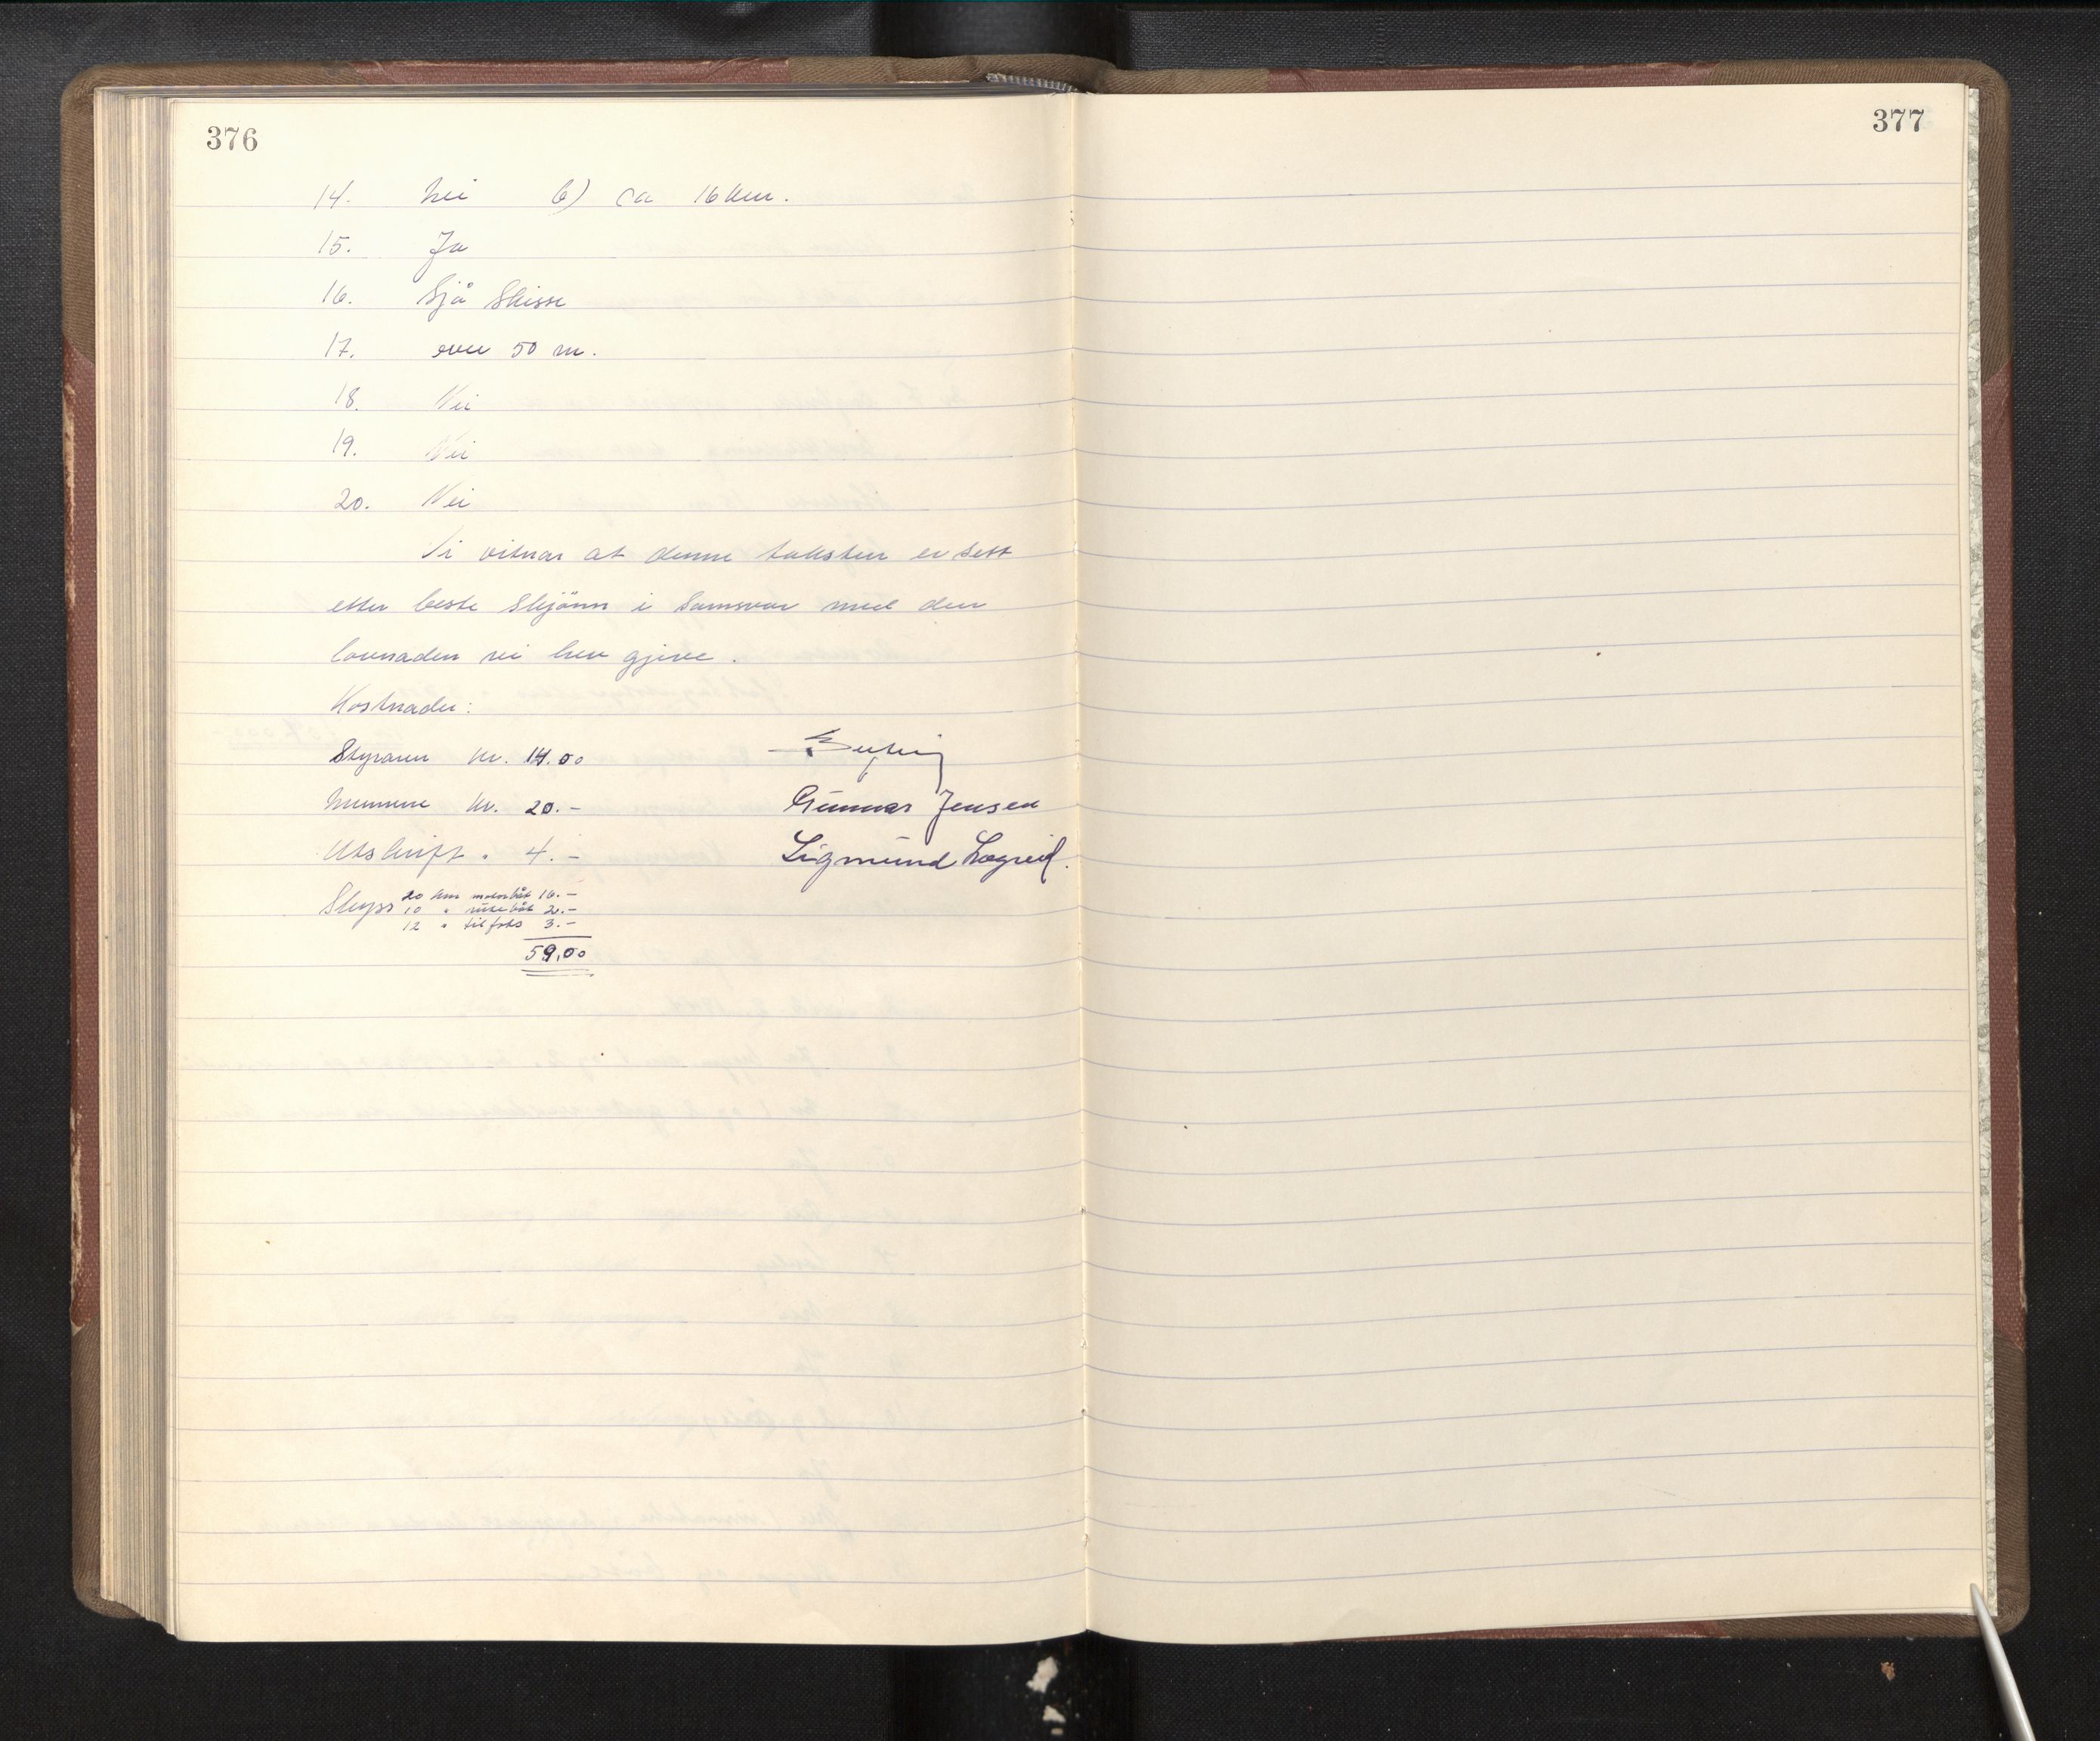 376
14. Nei b) ca 16 km.
15. Ja
16. Sjå Skisse
17. over 50 m.
18. Nei
19. Nei
20. Nei
Vi vitnar at denne taksten er sett
etter beste skjönn i samsvar med den
lovnaden vi hev gjeve.
Kostnader:
Styraren kr. 14.00
Mennene kr. 20.- Gunnar Jensen
Utskrift " 4.- Sigmund Lægreid.
Skyss 20 km motorbåt 16.-
10 " rutebåt 2.-
12 " til fots 3.-
59,00
377